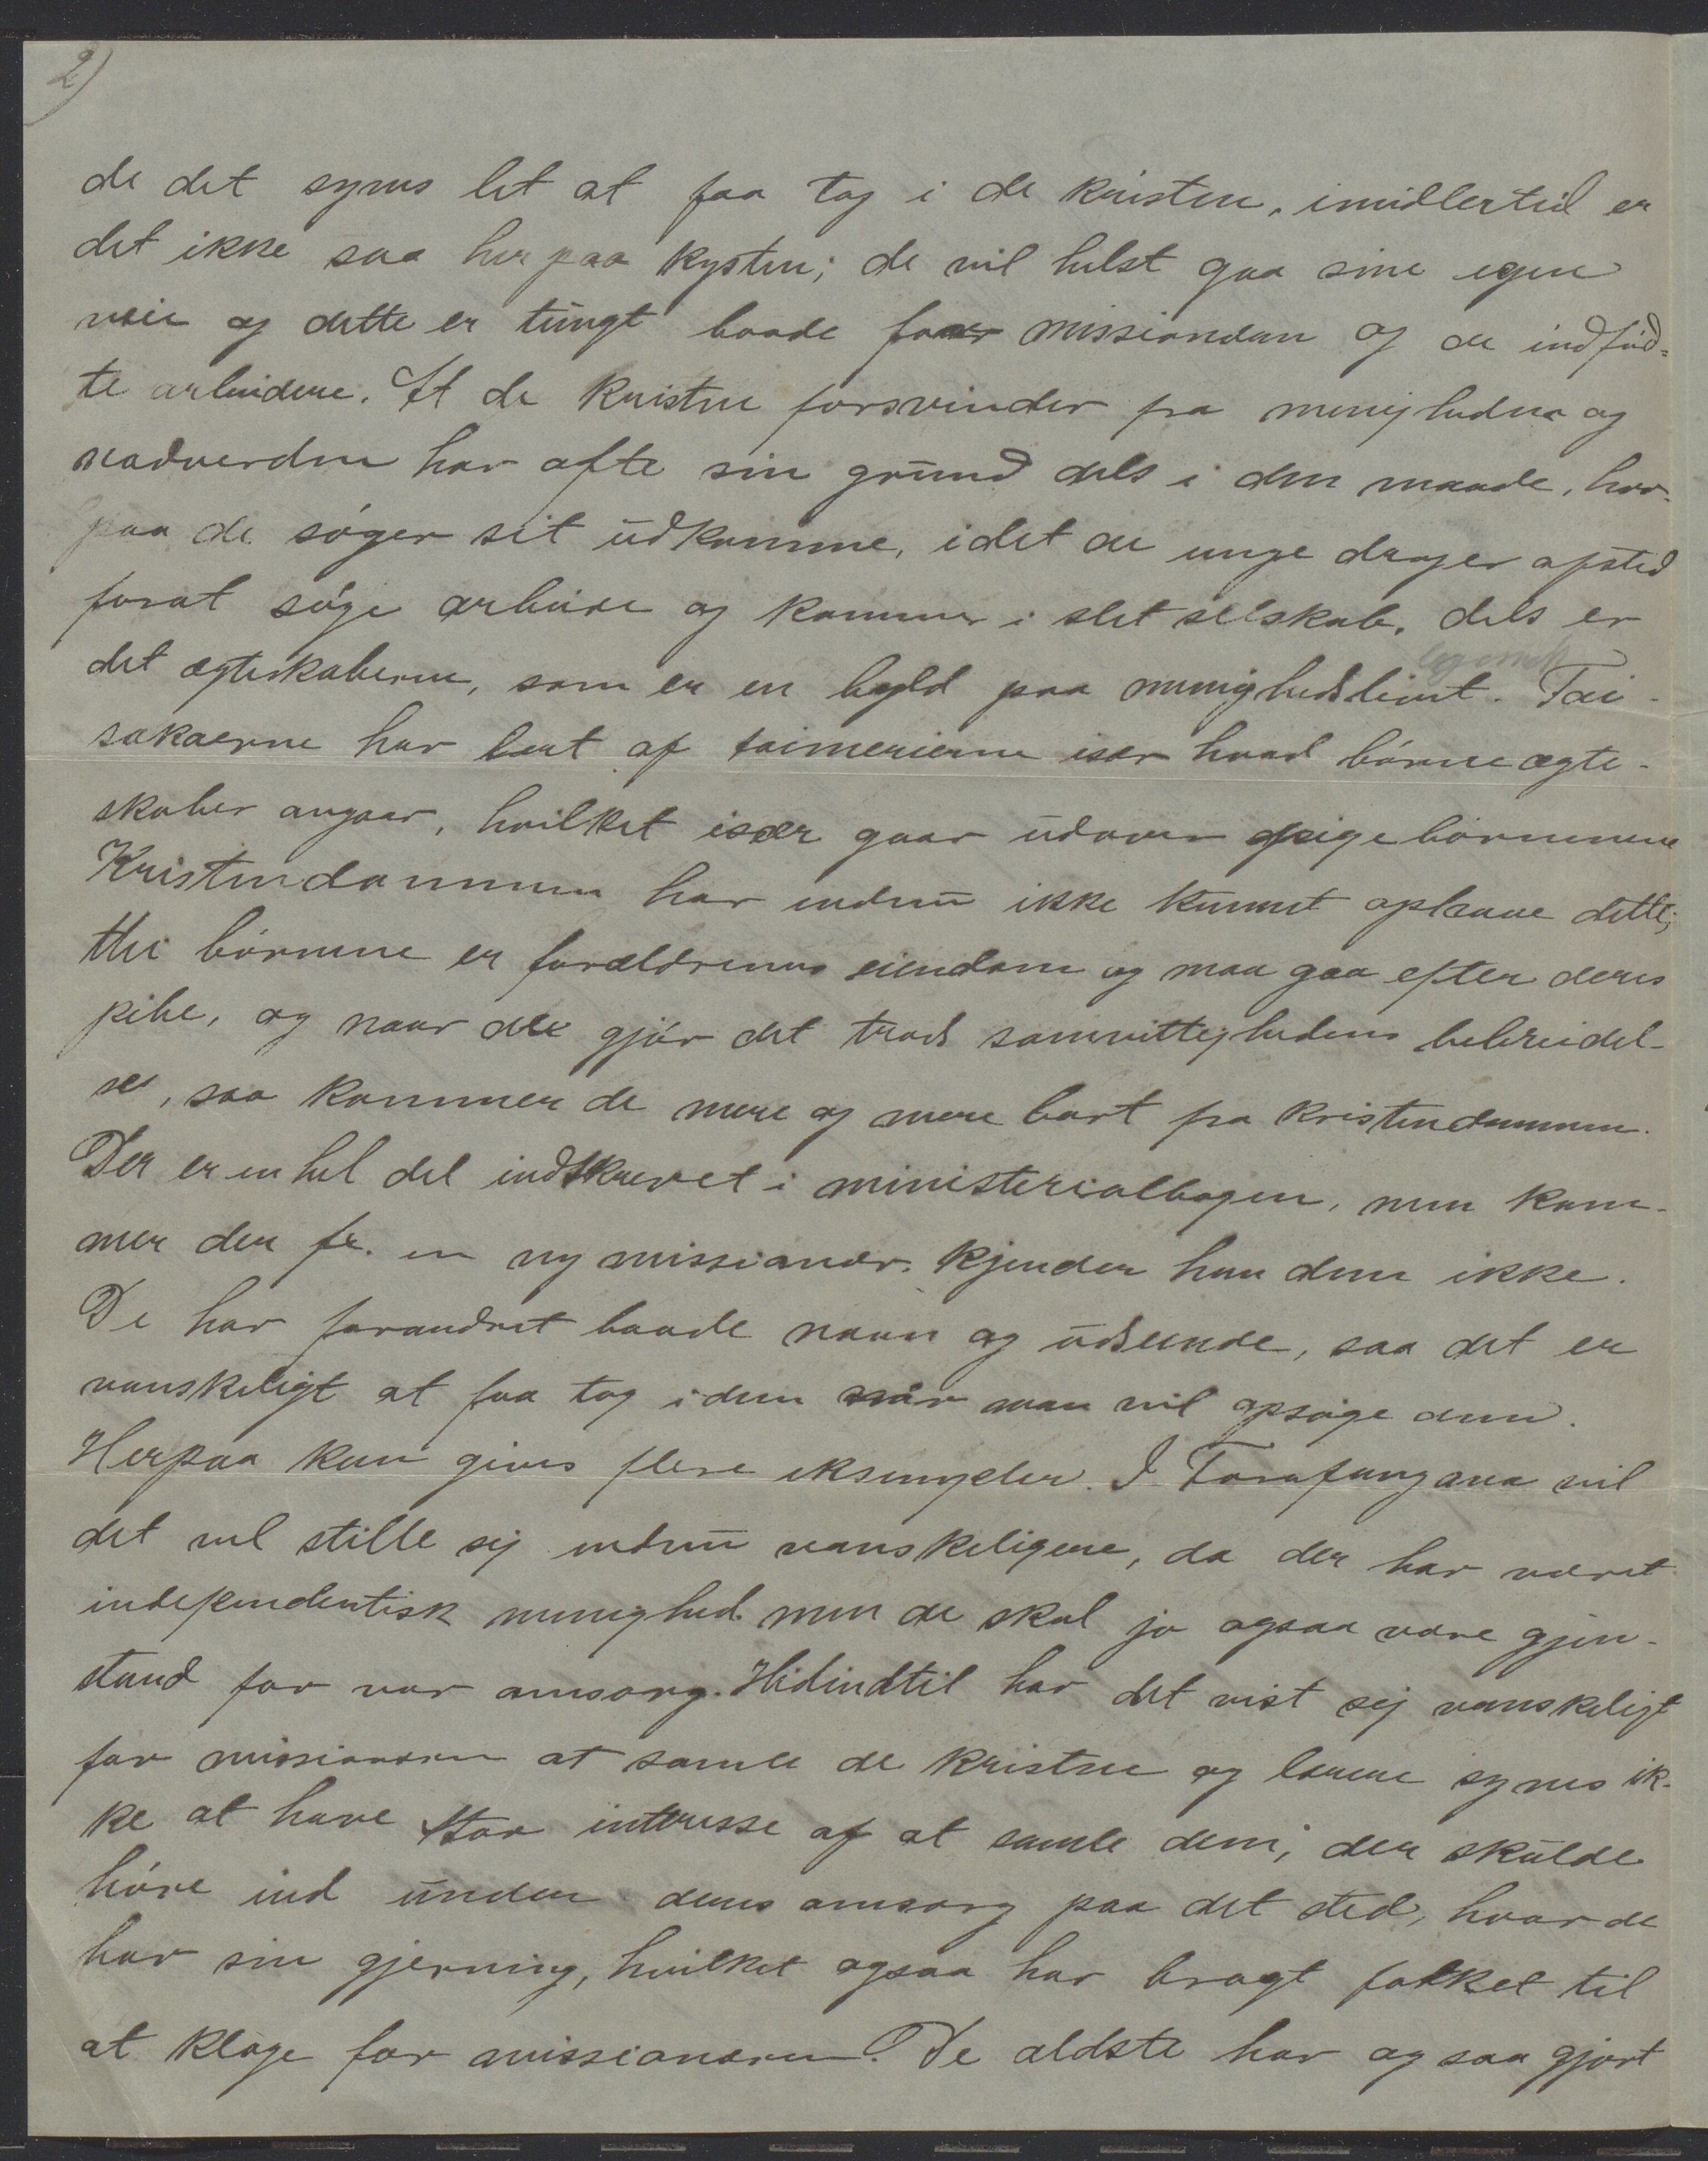 2)
de det synes let at faa tag i de kristne, imidlertid er
det ikke saa her paa kysten; de vil helst gaa sine egne
veie og dette er tungt baade for missionæren og de indfød-
te arbeidere. At de kristne forsvinder fra menigheden og
nadverden har ofte sin grund dels i den maade, hvor-
paa de søger sit udkomme, idet de unge drager afsted
forat søge arbeide og kommer i slet selskab, dels er
det ægteskaberne, som er en byld paa menighedslivet. Tai-
sakaerne har lært af taimerierne især hvad børneægte-
skaber angaar, hvilket især gaar udover pigebørnene
Kristendommen har endnu ikke kunnet ophæve dette;
thi børnene er forældrenes eiendom og maa gaa efter deres
pibe, og naar de gjør det trods samvittighedens bebreidel-
se, saa kommer de mere og mere bort fra kristendommen.
Der er en hel del indskrevet i ministerialbogen, men kom-
mer der fx. en ny missionær, kjender han dem ikke.
De har forandret baade navn og udseende, saa det er
vanskeligt at faa tag i dem når man vil opsøge dem.
Herpaa kan gives flere eksempler. I Farafangana vil
det vel stille sig endnu vanskeligere, da der har været
independentisk menighed men de skal jo ogsaa være gjen-
stand for vor omsorg. Hidindtil har det vist sig vanskeligt
for missionæren at samle de kristne og lærerne synes ik-
ke at have stor interesse af at samle dem, der skulde
høre ind under deres omsorg paa det sted, hvor de
har sin gjerning, hvilket ogsaa har bragt folket til
at klage for missionæren. De ældste har ogsaa gjort